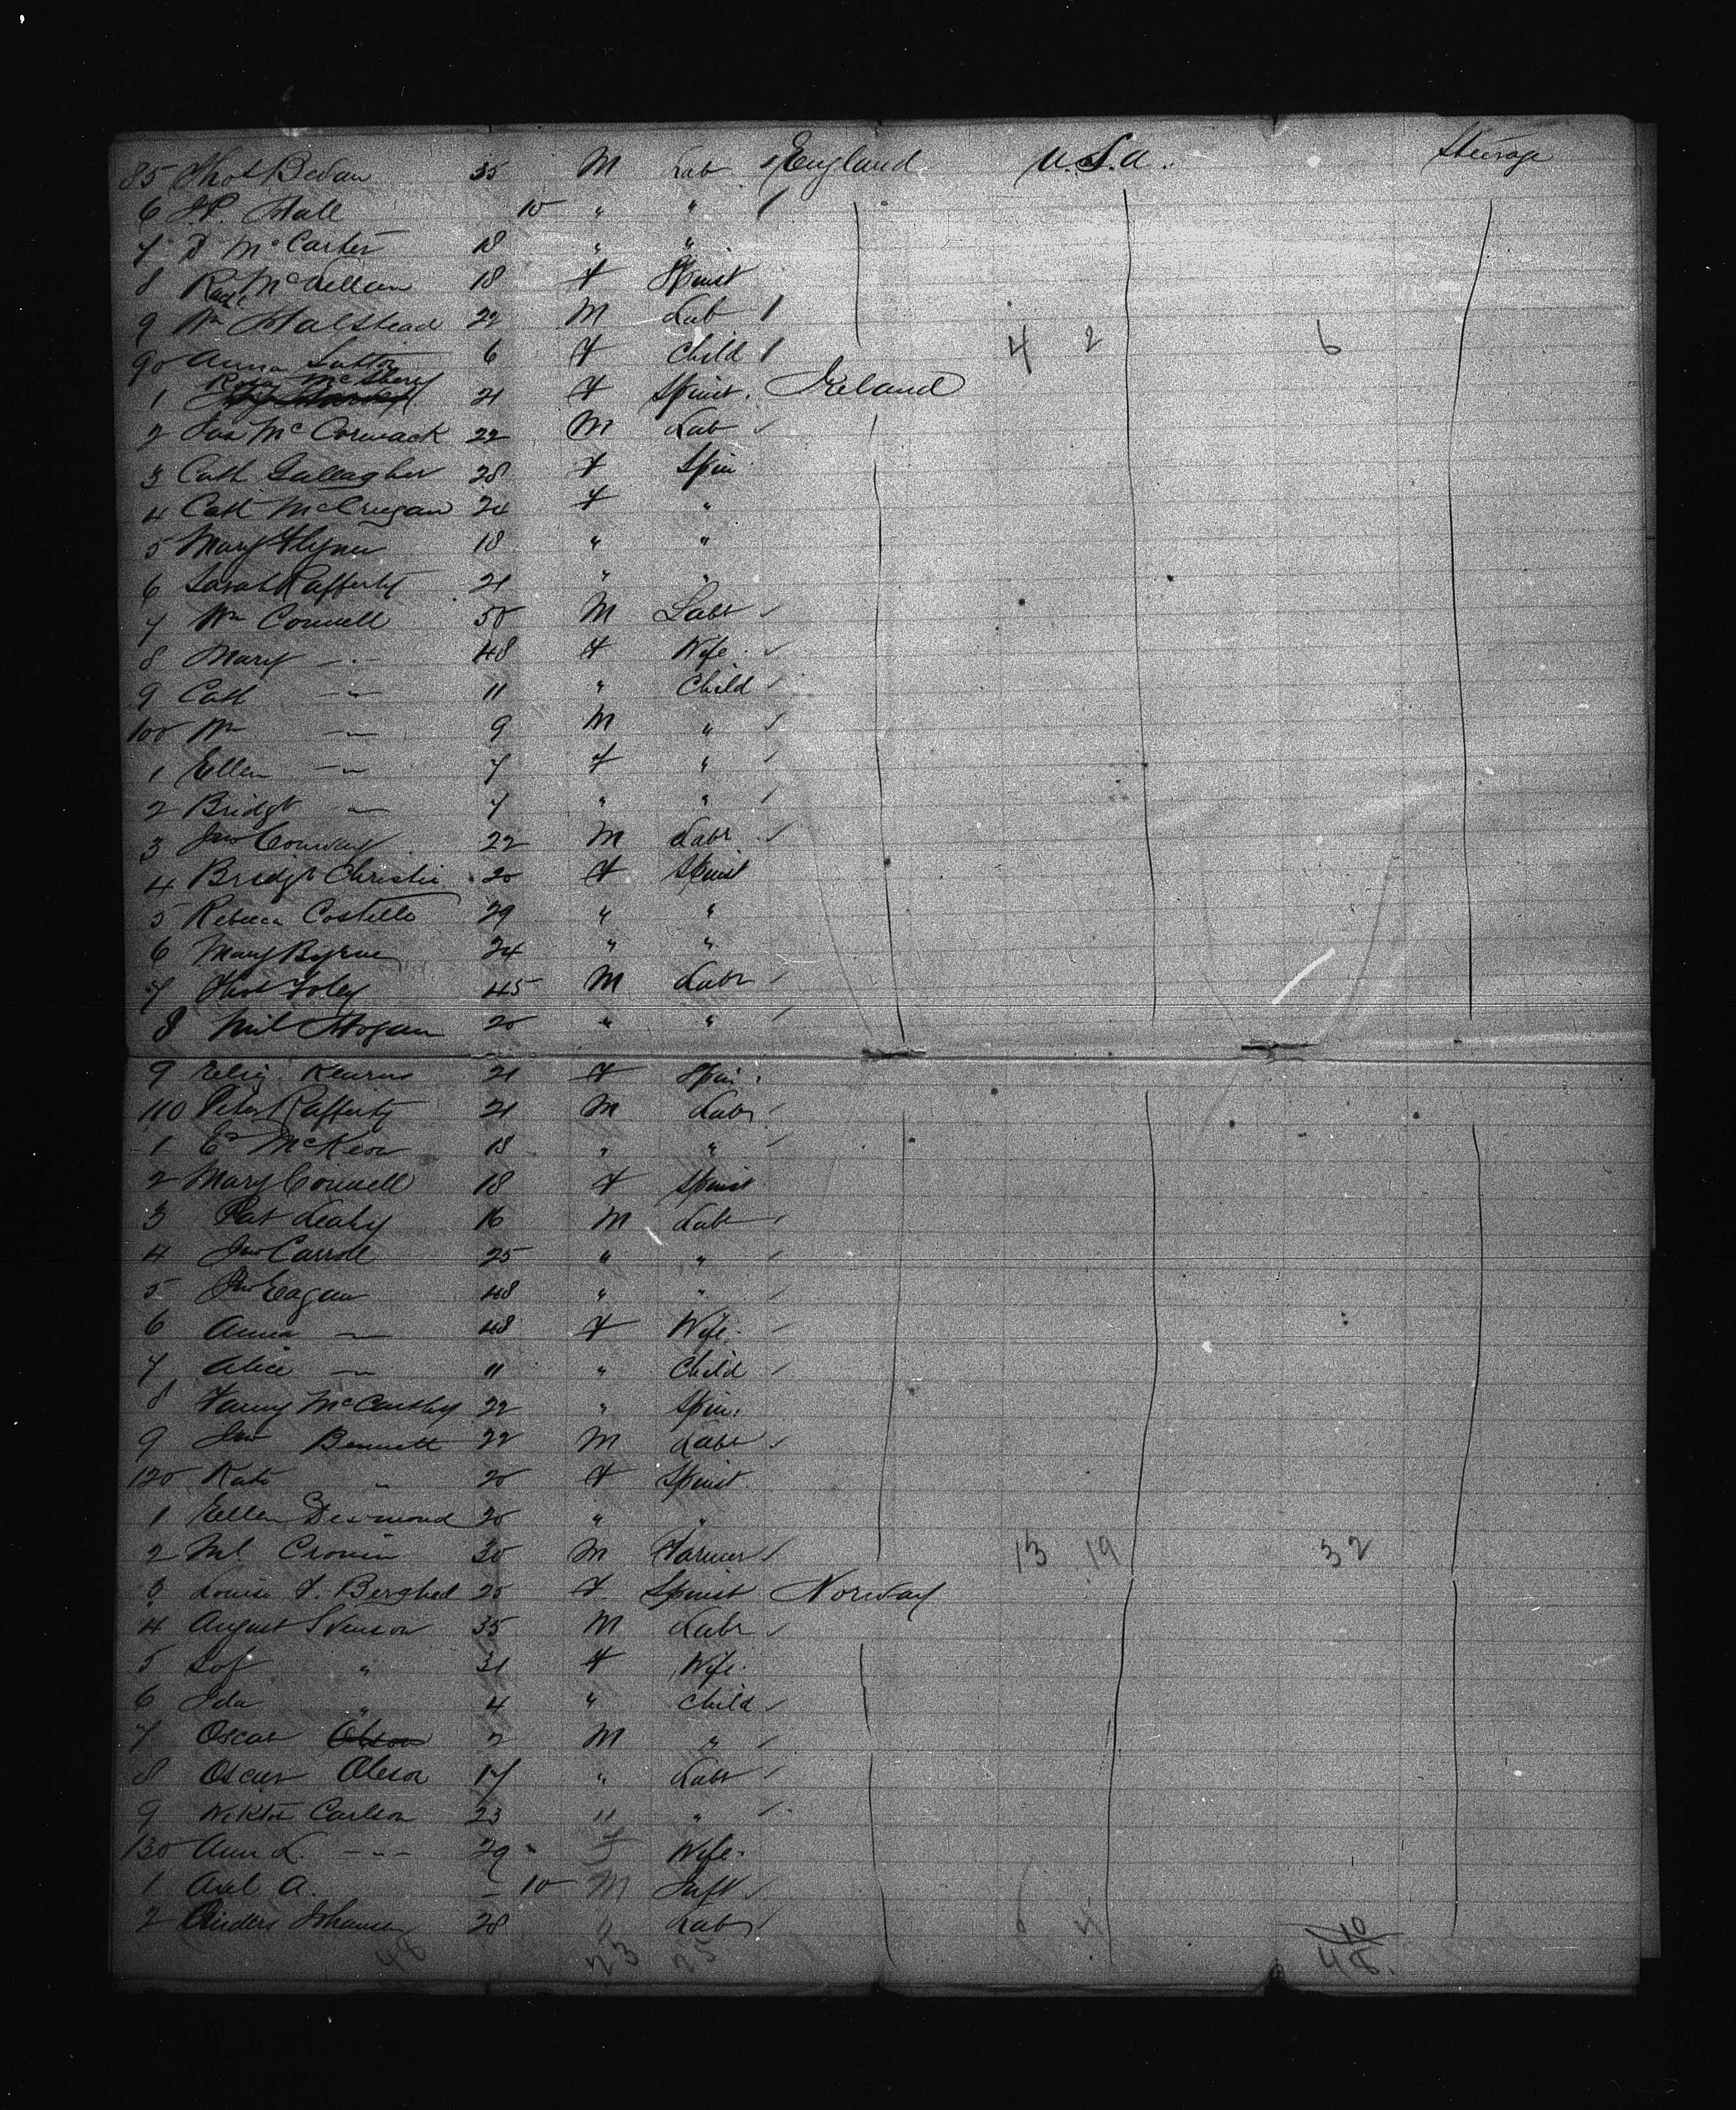 85 Thos Bevan 35 M Lab England U.S.A. Steerage
6 J.P. Hall 10 " "
7 D McCarter 18 " "
8 McLellan 18 F Spinst
9 Wm Halstead 22 M Lab
90 Anna Sutton 6 F Child 4 2 6
1 Rosy McSherry 21 F Spinst. Ireland
2 Jas McCormack 22 M Lab
3 Cath Gallagher 28 F Spin
4 Cath McCrugan 24 F "
5 Mary Flynn 18 " "
6 Sarah Rafferty 21 " "
7 Wm Connell 50 M Labr
8 Mary - " - 48 F Wife.
9 Cath - " - 11 " Child
100 Wm - " - 9 M "
1 Ellen - " - 7 F "
2 Bridgt - " - 7 " "
3 Jno Conway 22 M Labr.
4 Bridgt Christie 20 F Spinst
5 Rebecca Costello 29 " "
6 Mary Byrne 24 " "
7 Thos Foley 45 M Labr
8 Mil Hogan 20 " "
9 Eliz. Kearns 21 F Spin.
110 Peter Rafferty 21 M Labr
1 McKeon 18 " "
2 Mary Connell 18 F Spinst
3 Pat Leahy 16 M Labr
4 Jno Carroll 25 " "
5 Jno Eagan 48 " "
6 Anna - " - 48 F Wife.
7 Alice - " - 11 " Child
8 Fanny McCarthy 22 " Spin.
9 Jno Bennett 22 M Labr
120 Kate " 20 F Spinst.
1 Ellen Desmond 20 " "
2 Ml. Cronin 30 M Farmer 13 19 32
3 Louise F. Berghed 25 F Spinst Norway
4 August Svenson 35 M Labr
5 Sof " 31 F Wife.
6 Ida " 4 " Child
7 Oscar Olson 2 M "
8 Oscar Oleson 17 " Labr
9 Wiktor Carlson 23 " "
130 Ann L. - " - 29 F Wife.
1 Axel A. - 10 M Inft
2 Anders Johansen 28 " Labr 6 4 10
48 23 25 48.